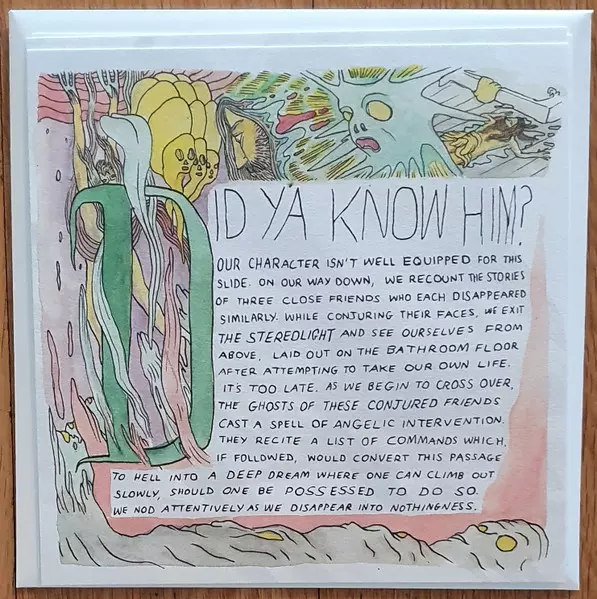 DID YA KNOW HIM?
OUR CHARACTER ISN'T WELL EQUIPPED FOR THIS
SLIDE. ON OUR WAY DOWN, WE RECOUNT THE STORIES
OF THREE CLOSE FRIENDS WHO EACH DISAPPEARED
SIMILARLY. WHILE CONJURING THEIR FACES, WE EXIT
THE STEREOLIGHT AND SEE OURSELVES FROM
ABOVE, LAID OUT ON THE BATHROOM FLOOR
AFTER ATTEMPTING TO TAKE OUR OWN LIFE.
IT'S TOO LATE. AS WE BEGIN TO CROSS OVER,
THE GHOSTS OF THESE CONJURED FRIENDS
CAST A SPELL OF ANGELIC INTERVENTION.
THEY RECITE A LIST OF COMMANDS WHICH,
IF FOLLOWED, WOULD CONVERT THIS PASSAGE
TO HELL INTO A DEEP DREAM WHERE ONE CAN CLIMB OUT
SLOWLY, SHOULD ONE BE POSSESSED TO DO SO.
WE NOD ATTENTIVELY AS WE DISAPPEAR INTO NOTHINGNESS.